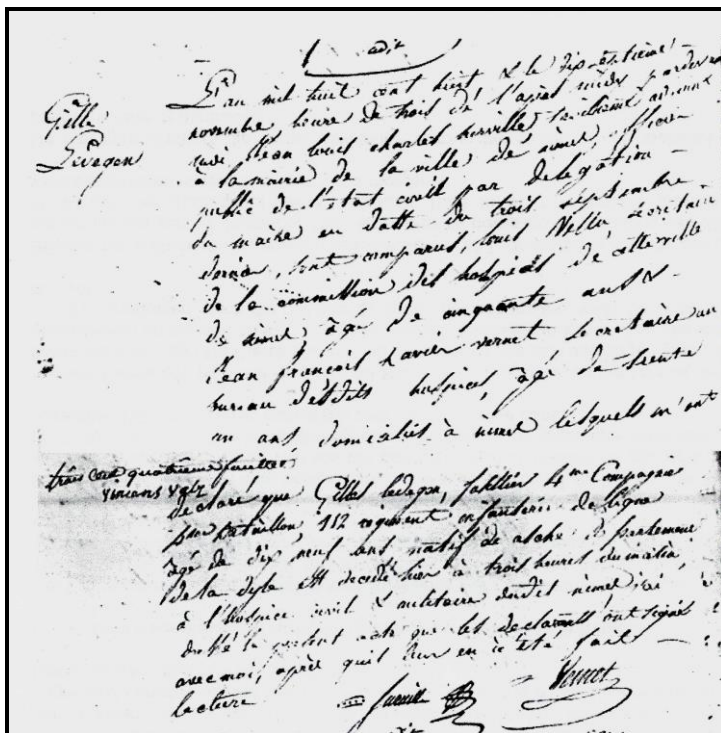 adj
Gille
Ledegen
L'an mil huit cent huit & le dix septieme
novembre heure de trois de l'après midi pardevant
moi Jean Louis Charles adjoint
à la mairie de la ville de nimes, officier
public de l'état civil par delegation
du maire en datte du trois septembre
dernier, sont comparus, Louis écrivain
de la commission des hospices de cette ville
de nimes, âgé de cinquante ans &
Jean françois Xavier vernet secretaire au
bureau desdits hospices, âgé de trente
un ans domiciliés à nimes lesquels m'ont
trois cent quatrieme feuillet
declaré que Gilles ledegen, fusillier 4me Compagnie
bataillon 112 regiment infanterie de ligne
âgé de dix neuf ans natif de departement
de la dyle est decedé hier à trois heures du matin
à l'hospice civil & militaire dudit nimes j'ai
dressé le present acte que les declarants ont signé
avec moi, après qu'il leur en à été fait
lecture
Vernet